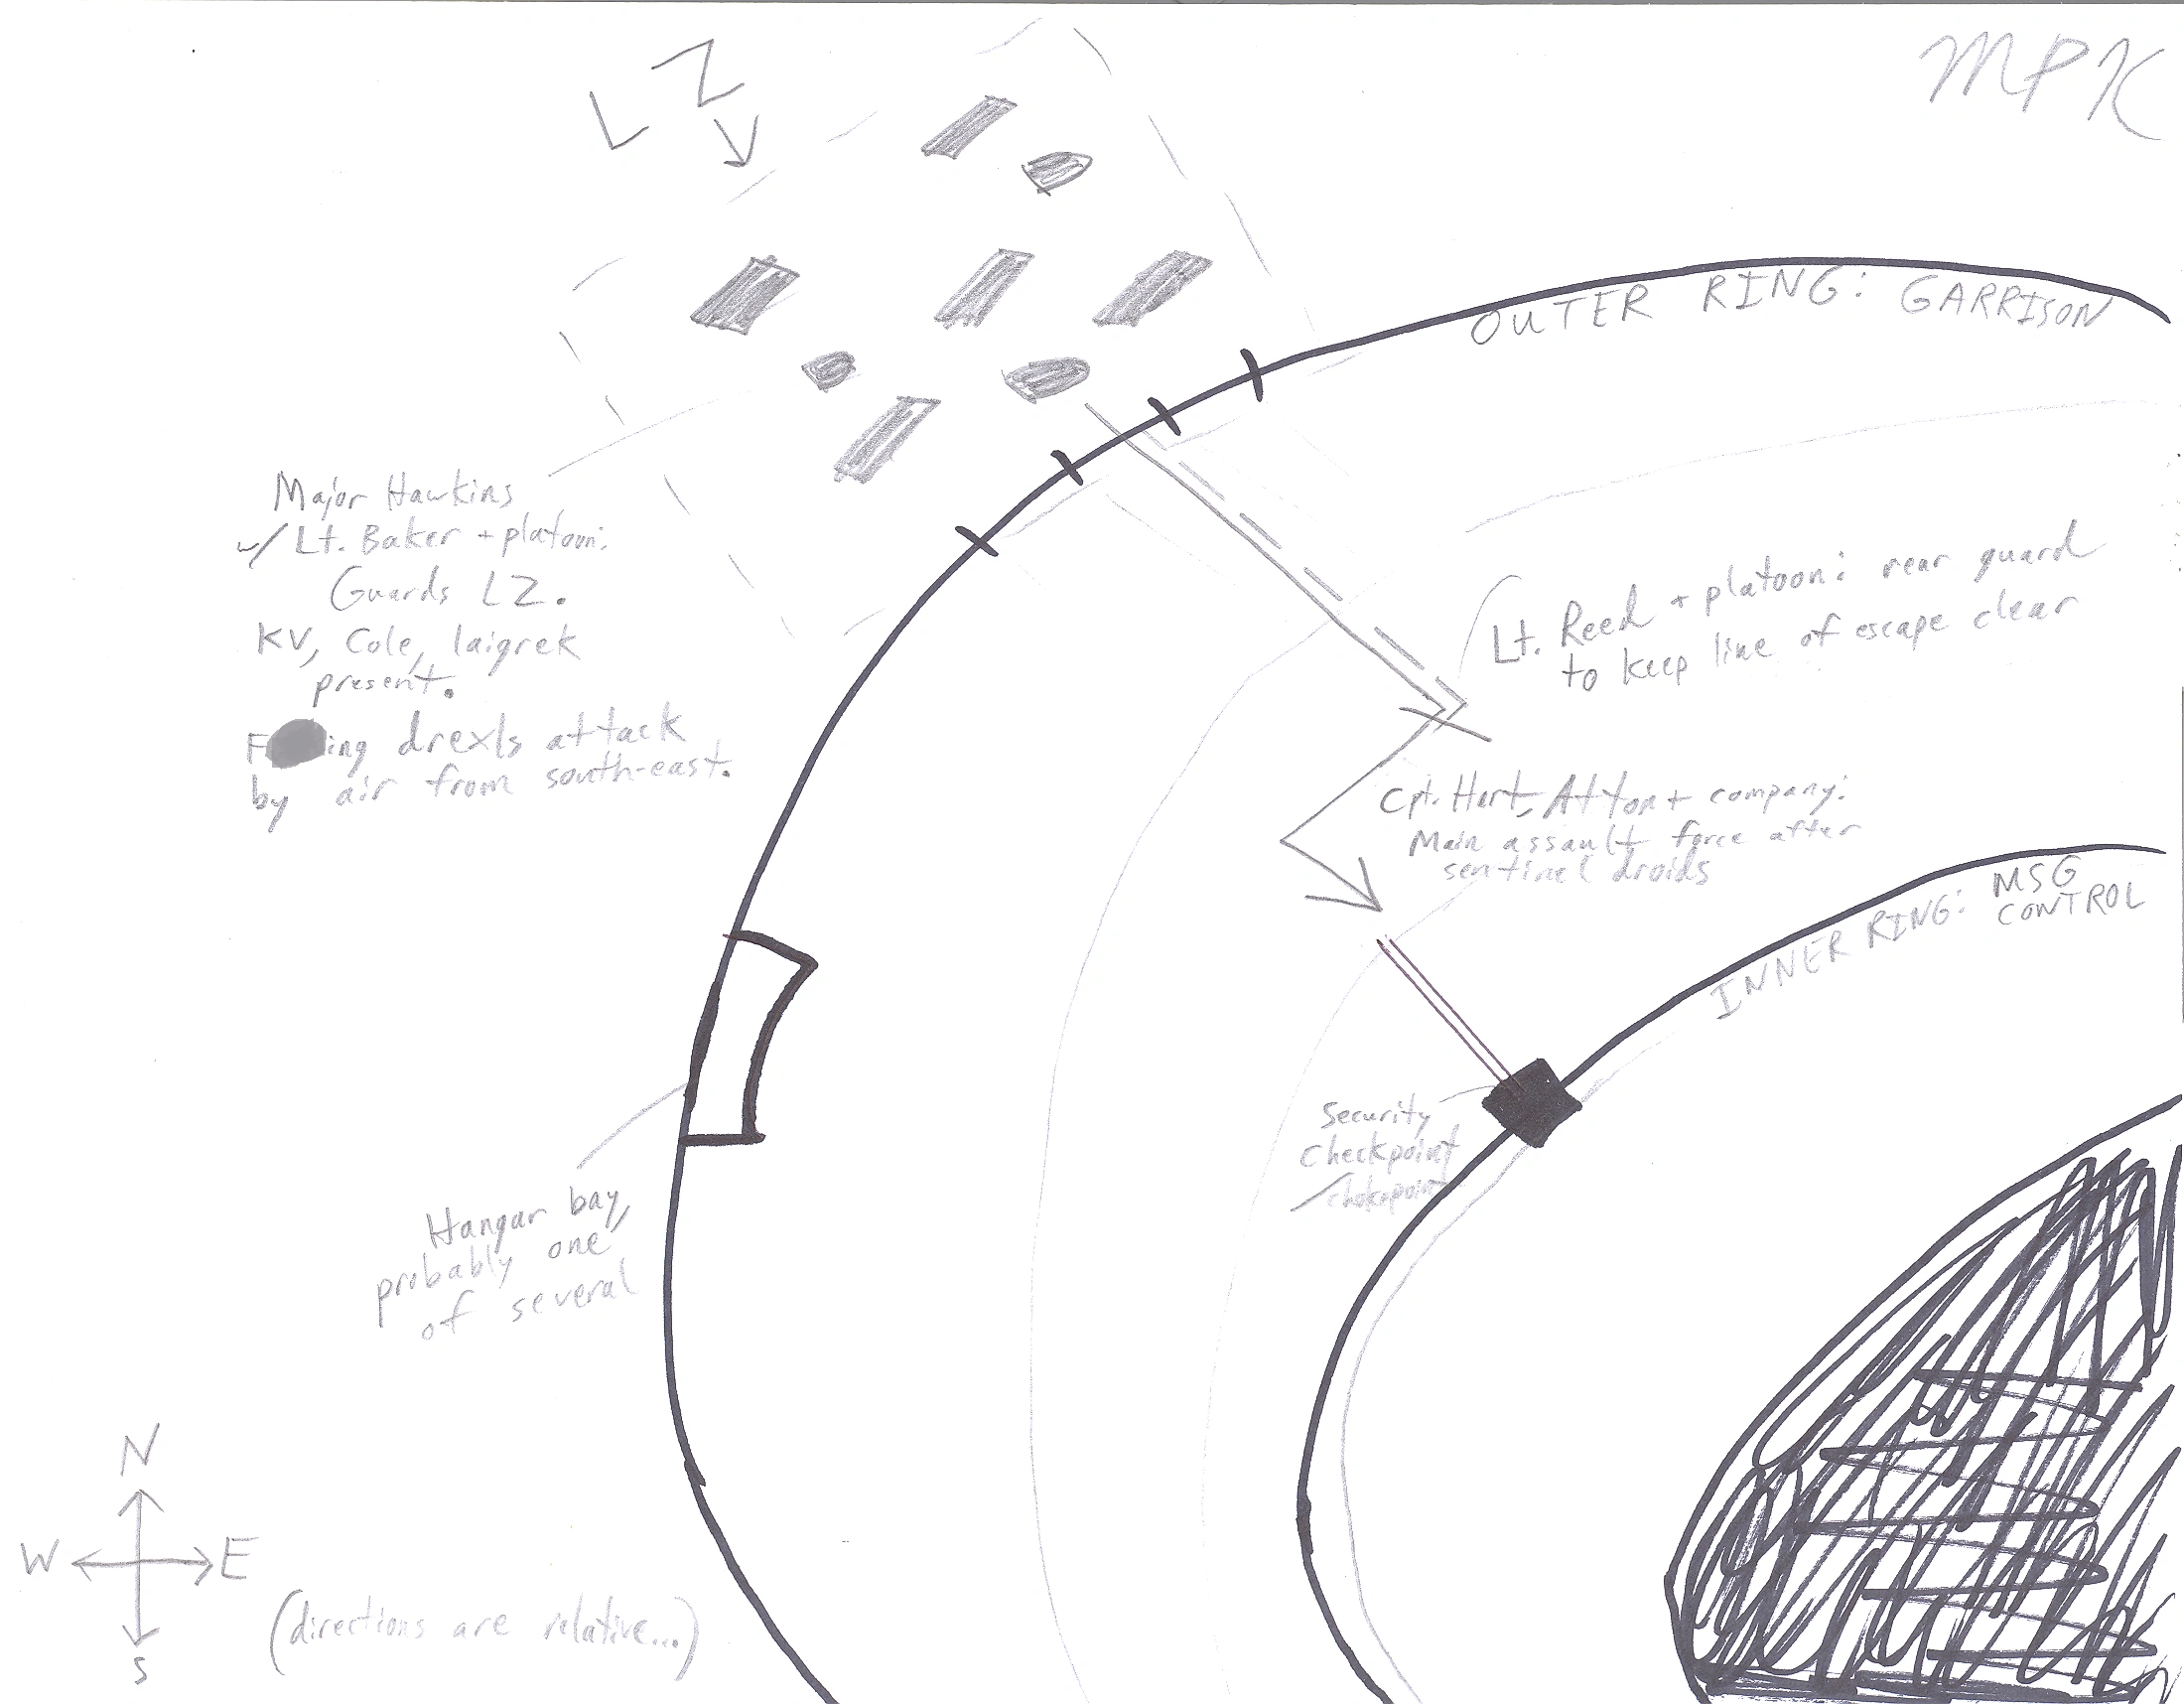 MPK
LZ
OUTER RING: GARRISON
Major Hawkins
w/ Lt. Baker + platoon:
Guards LZ.
KV, Cole, laigrek
present.
F ing drexls attack
by air from south-east.
Lt. Reed + platoon: rear guard
to keep line of escape clear
Cpt. Hart, Atton + company:
Main assault force after
sentinel droids
INNER RING: MSG
CONTROL
Security
checkpoint
/chokepoint
Hangar bay,
probably one
of several
N
W E
S
(directions are relative...)